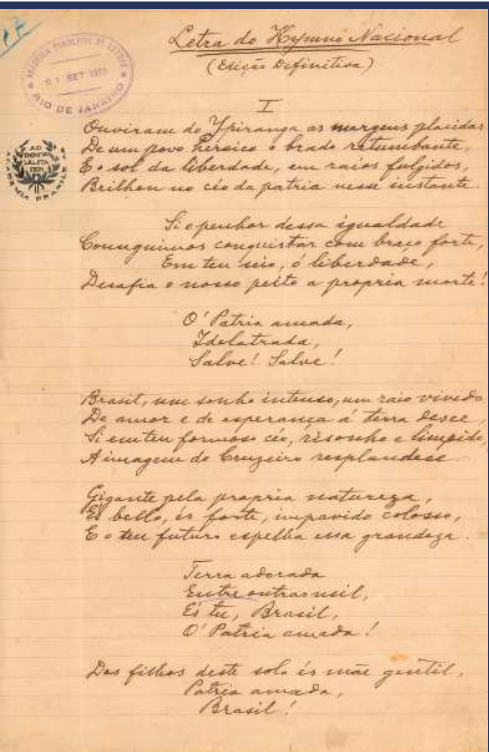 Letra do Hymno Nacional
(Edição Definitiva)
ACADEMIA BRASILEIRA DE LETRAS
SET
RIO DE JANEIRO
AD
IMMOR
TALITA
TEM
I
Ouviram do Ypiranga as margens placidas
De um povo heroico o brado retumbante,
E o sol da liberdade, em raios fulgidos,
Brilhou no céo da patria nesse instante.
Si o penhor dessa igualdade
Conseguimos conquistar com braço forte,
Em teu seio, ó liberdade,
Desafia o nosso peito a propria morte!
O' Patria amada,
Idolatrada,
Salve! Salve!
Brasil, um sonho intenso, um raio vivido
De amor e de esperança á terra desce,
Si em teu formoso céo, risonho e limpido,
A imagem do Cruzeiro resplandece.
Gigante pela propria natureza,
És bello, és forte, impavido colosso,
E o teu futuro espelha essa grandeza.
Terra adorada
Entre outras mil,
És tu, Brasil,
O' Patria amada!
Dos filhos deste solo és mãe gentil,
Patria amada,
Brasil!